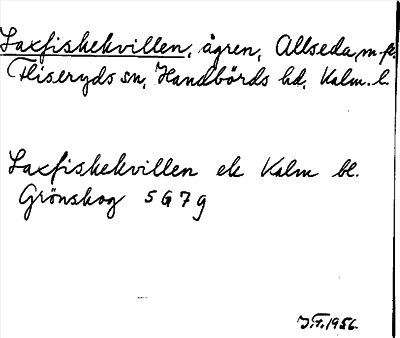 Laxfiskekvillen, ågren, Allseda, m fl.
Fliseryds sn, Handbörds hd, Kalm. l.
Laxfiskekvillen ek Kalm bl.
Grönskog 5G7g
J.F. 1956.